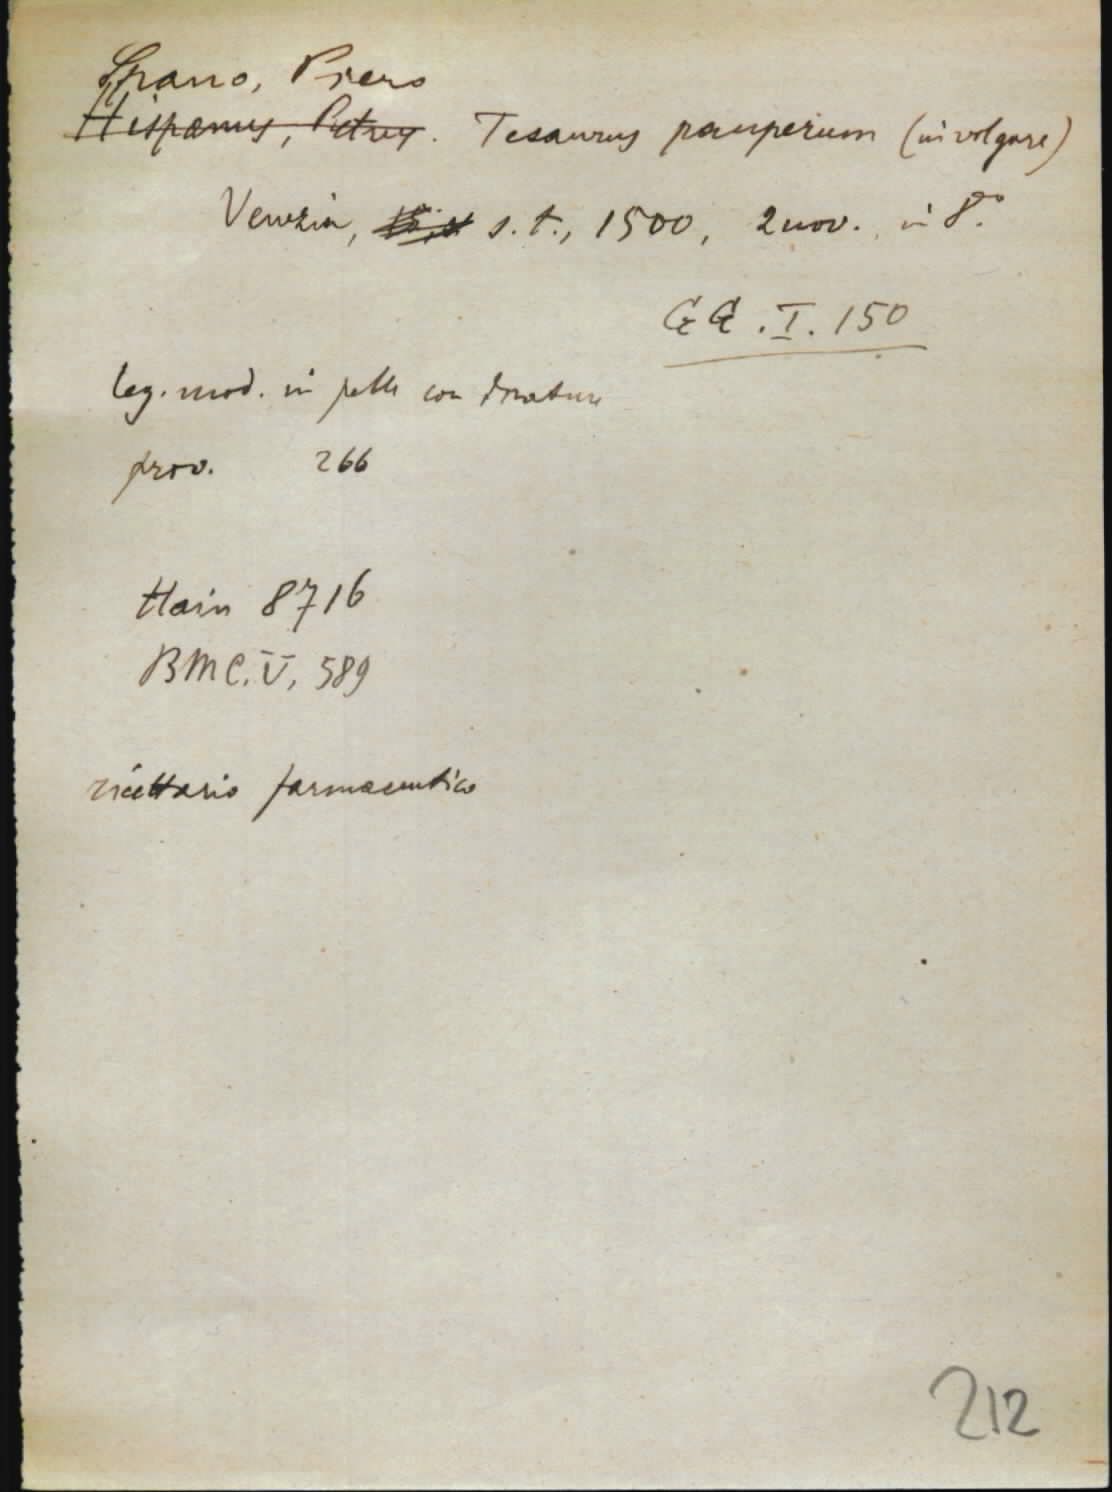 Spano, Piero
Hispanus, Petrus. Tesaurus pauperum (in volgare)
Venezia, s. t., 1500, 2 nov. in 8°.
GG . I . 150
leg. mod. in pelle con dorature
prov. 266
Hain 8716
BMC. V, 589
ricettario farmaceutico
212